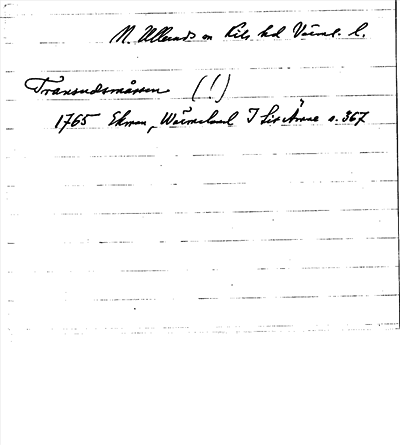 N. Ullerud sn Kils hd Värml. l.
Transudsmåssen (!)
1765 Ekman, Wärmeland I s. 367